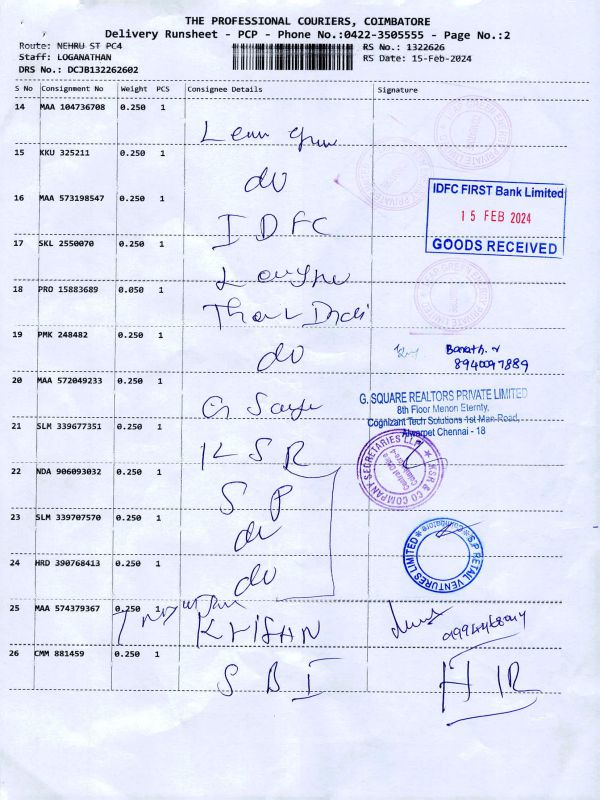 THE PROFESSIONAL COURIERS, COIMBATORE
Delivery Runsheet - PCP - Phone No.:0422-3505555 - Page No.:2
Route: NEHRU ST PC4
RS No.: 1322626
Staff: LOGANATHAN
RS Date: 15-Feb-2024
DRS No.: DCJB132262602
S No Consignment No Weight PCS Consignee Details Signature
14 MAA 104736708 0.250 1
15 KKU 325211 0.250 1
do
16 MAA 573198547 0.250 1
IDFC
IDFC FIRST Bank Limited
15 FEB 2024
GOODS RECEIVED
17 SKL 2550070 0.250 1
18 PRO 15883689 0.050 1
19 PMK 248482 0.250 1
do
8940097889
20 MAA 572049233 0.250 1
G Square
G. SQUARE REALTORS PRIVATE LIMITED
8th Floor Menon Eternty,
Cognizant Tech Solutions 1st Main Road,
Alwarpet Chennai - 18
21 SLM 339677351 0.250 1
KSR
KSR & CO COMPANY SECRETARIES LLP
22 NDA 906093032 0.250 1
SP
23 SLM 339707570 0.250 1
do
24 HRD 390768413 0.250 1
do
S.P RETAIL VENTURES LIMITED
Coimbatore
25 MAA 574379367 0.250 1
KRISHN
26 CMM 881459 0.250 1
SBI